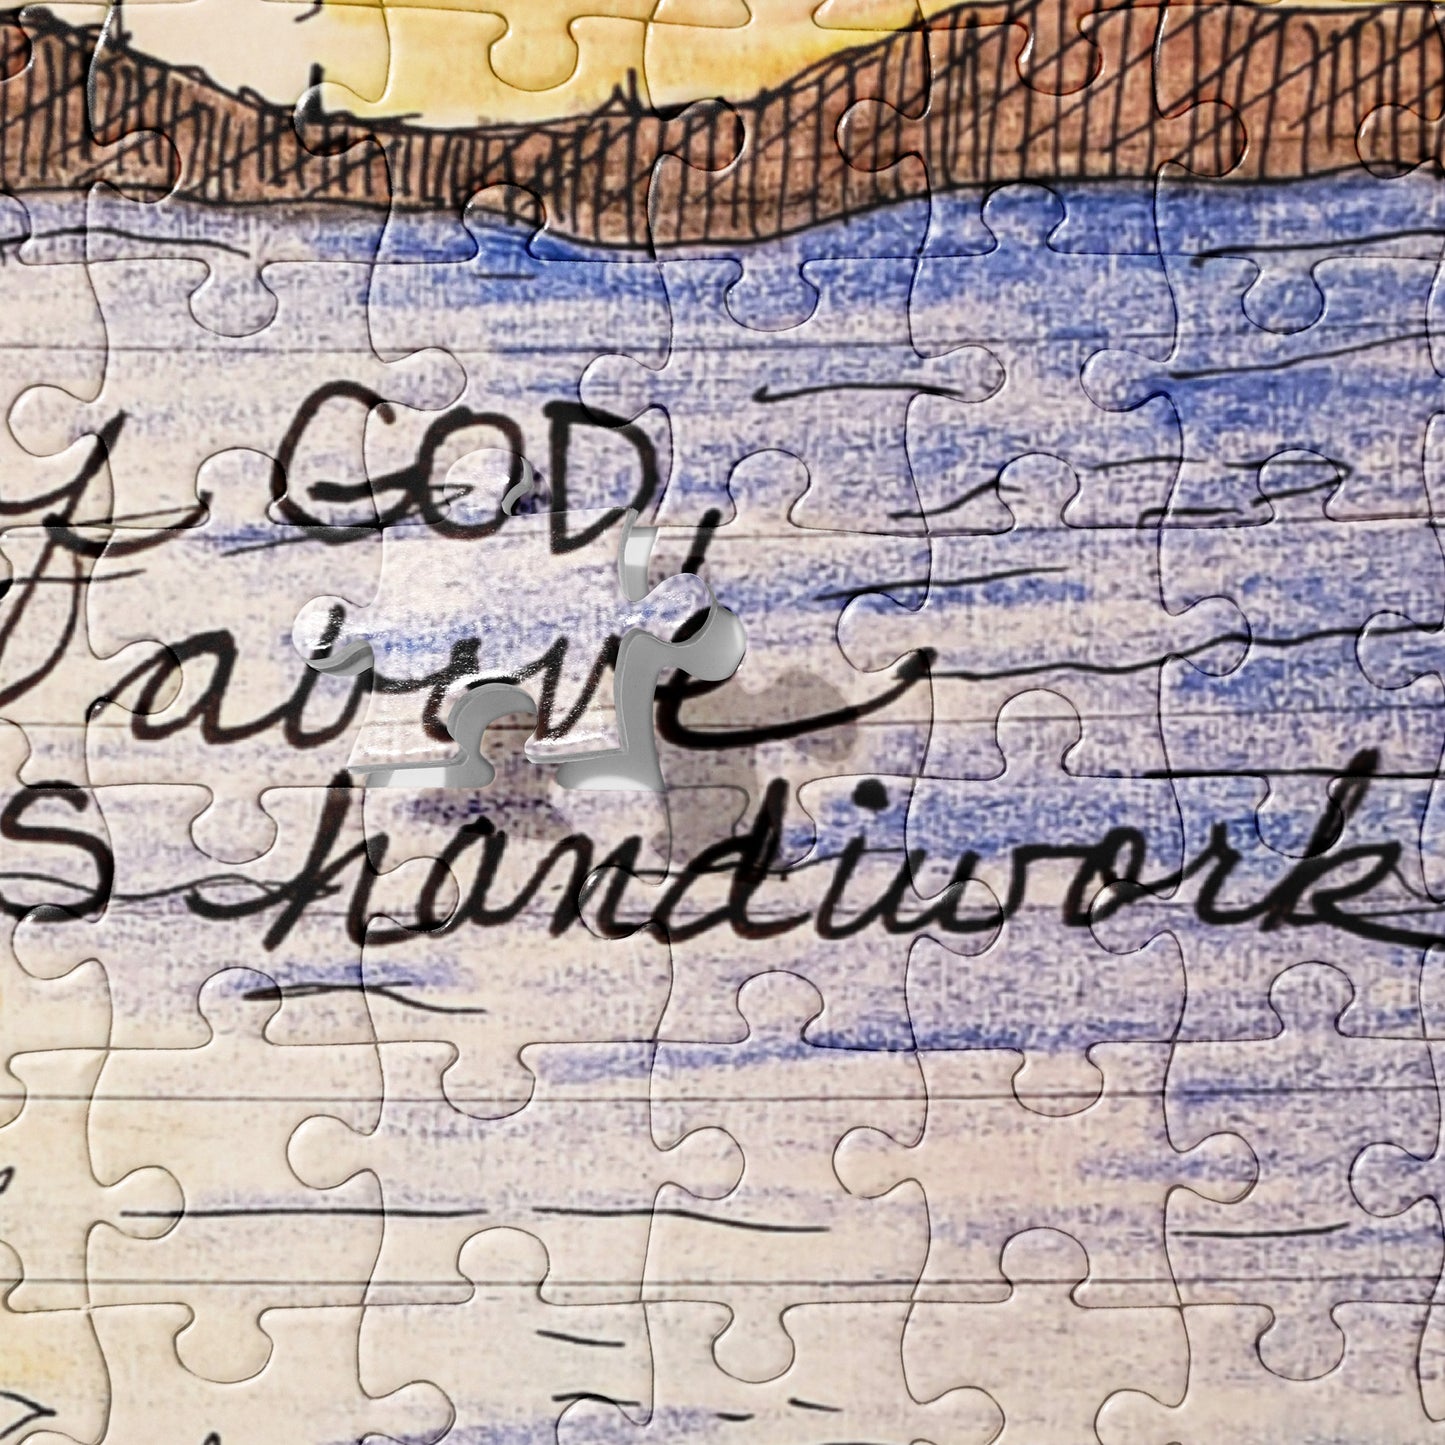 GOD,
above
s handiwork